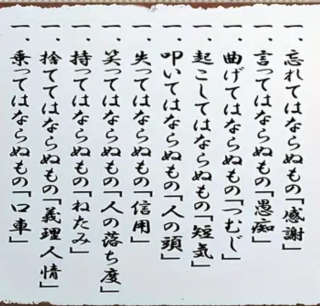 一、忘れてはならぬもの「感謝」
一、言ってはならぬもの「愚痴」
一、曲げてはならぬもの「つむじ」
一、起こしてはならぬもの「短気」
一、叩いてはならぬもの「人の頭」
一、失ってはならぬもの「信用」
一、笑ってはならぬもの「人の落ち度」
一、持ってはならぬもの「ねたみ」
一、捨ててはならぬもの「義理人情」
一、乗ってはならぬもの「口車」